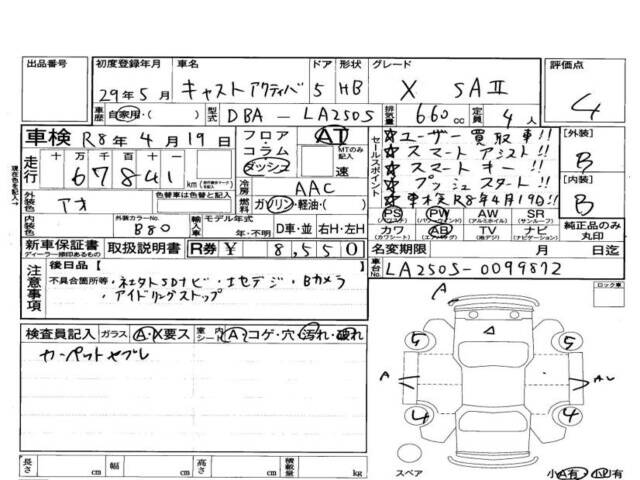 出品番号 初度登録年月 車名 ドア 形状 グレード 評価点
29年5月 キャスト アクティバ 5 HB X SAⅡ 4
車歴 自家用・( ) 型式 DBA-LA250S 排気量 660cc 定員 4人
車検 R8年4月19日 フロア AT
コラム MTのみ記入
ダッシュ 速
走行 十万千百十一
67841 km
セールスポイント
☆ユーザー買取車!!
☆スマートアシスト!!
☆スマートキー!!
☆プッシュスタート!!
☆車検R8年4月19日!!
【外装】
B
【内装】
B
現在色を記入→
外装色 アオ 色替車は色替前元色
冷房 AAC
燃料 ガソリン・軽油・( )
内装色 外装カラーNo. B80 輸入車 モデル年式 年・不明 D車・並 右H・左H
PS (パワステ) PW (パワーウィンドウ) AW (アルミホイール) SR (サンルーフ)
カワ (カワシート) AB (エアバッグ) TV (地デジ) ナビ (ナビゲーション)
純正品のみ丸印
新車保証書 ディーラー捺印あるもの 取扱説明書 R券 ¥ 8,550
名変期限 月 日迄
車台No. LA250S-0099872
注意事項 後日品【 】
不具合箇所等・ネエタトSDナビ・1セデジ・Bカメラ
・アイドリングストップ
ロック車
検査員記入 ガラス A・X要ス 車内シート A コゲ・穴・汚れ・破れ
カーペットヤブレ
A
5 5
A
4 4
スペア
小A有・小U有
長さ cm 幅 cm 高さ cm 積載量 kg